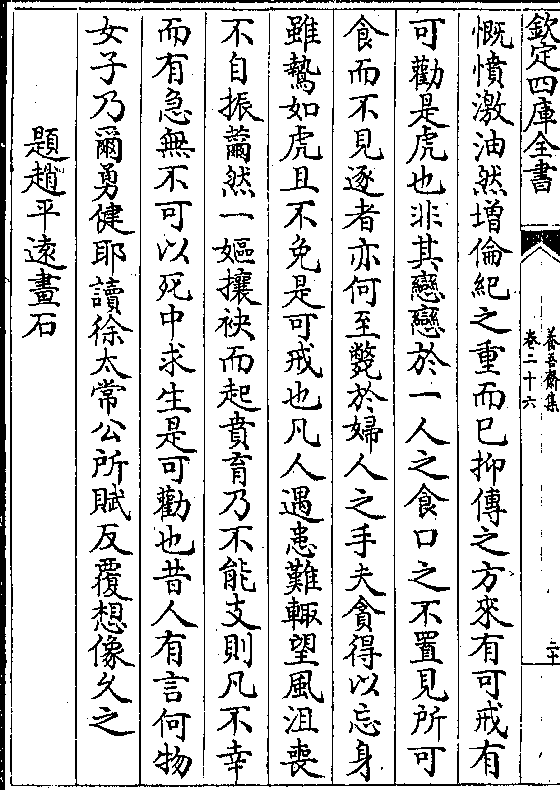 欽定四庫全書
養吾齋集
卷二十六
二十
慨憤激油然增倫紀之重而已抑傳之方來有可戒有
可勸是虎也非其戀戀於一人之食口之不置見所可
食而不見逐者亦何至斃於婦人之手夫貪得以忘身
雖鷙如虎且不免是可戒也凡人遇患難輙望風沮喪
不自振薾然一嫗攘袂而起賁育乃不能支則凡不幸
而有急無不可以死中求生是可勸也昔人有言何物
女子乃爾勇健耶讀徐太常公所賦反覆想像久之
題趙平逺畫石